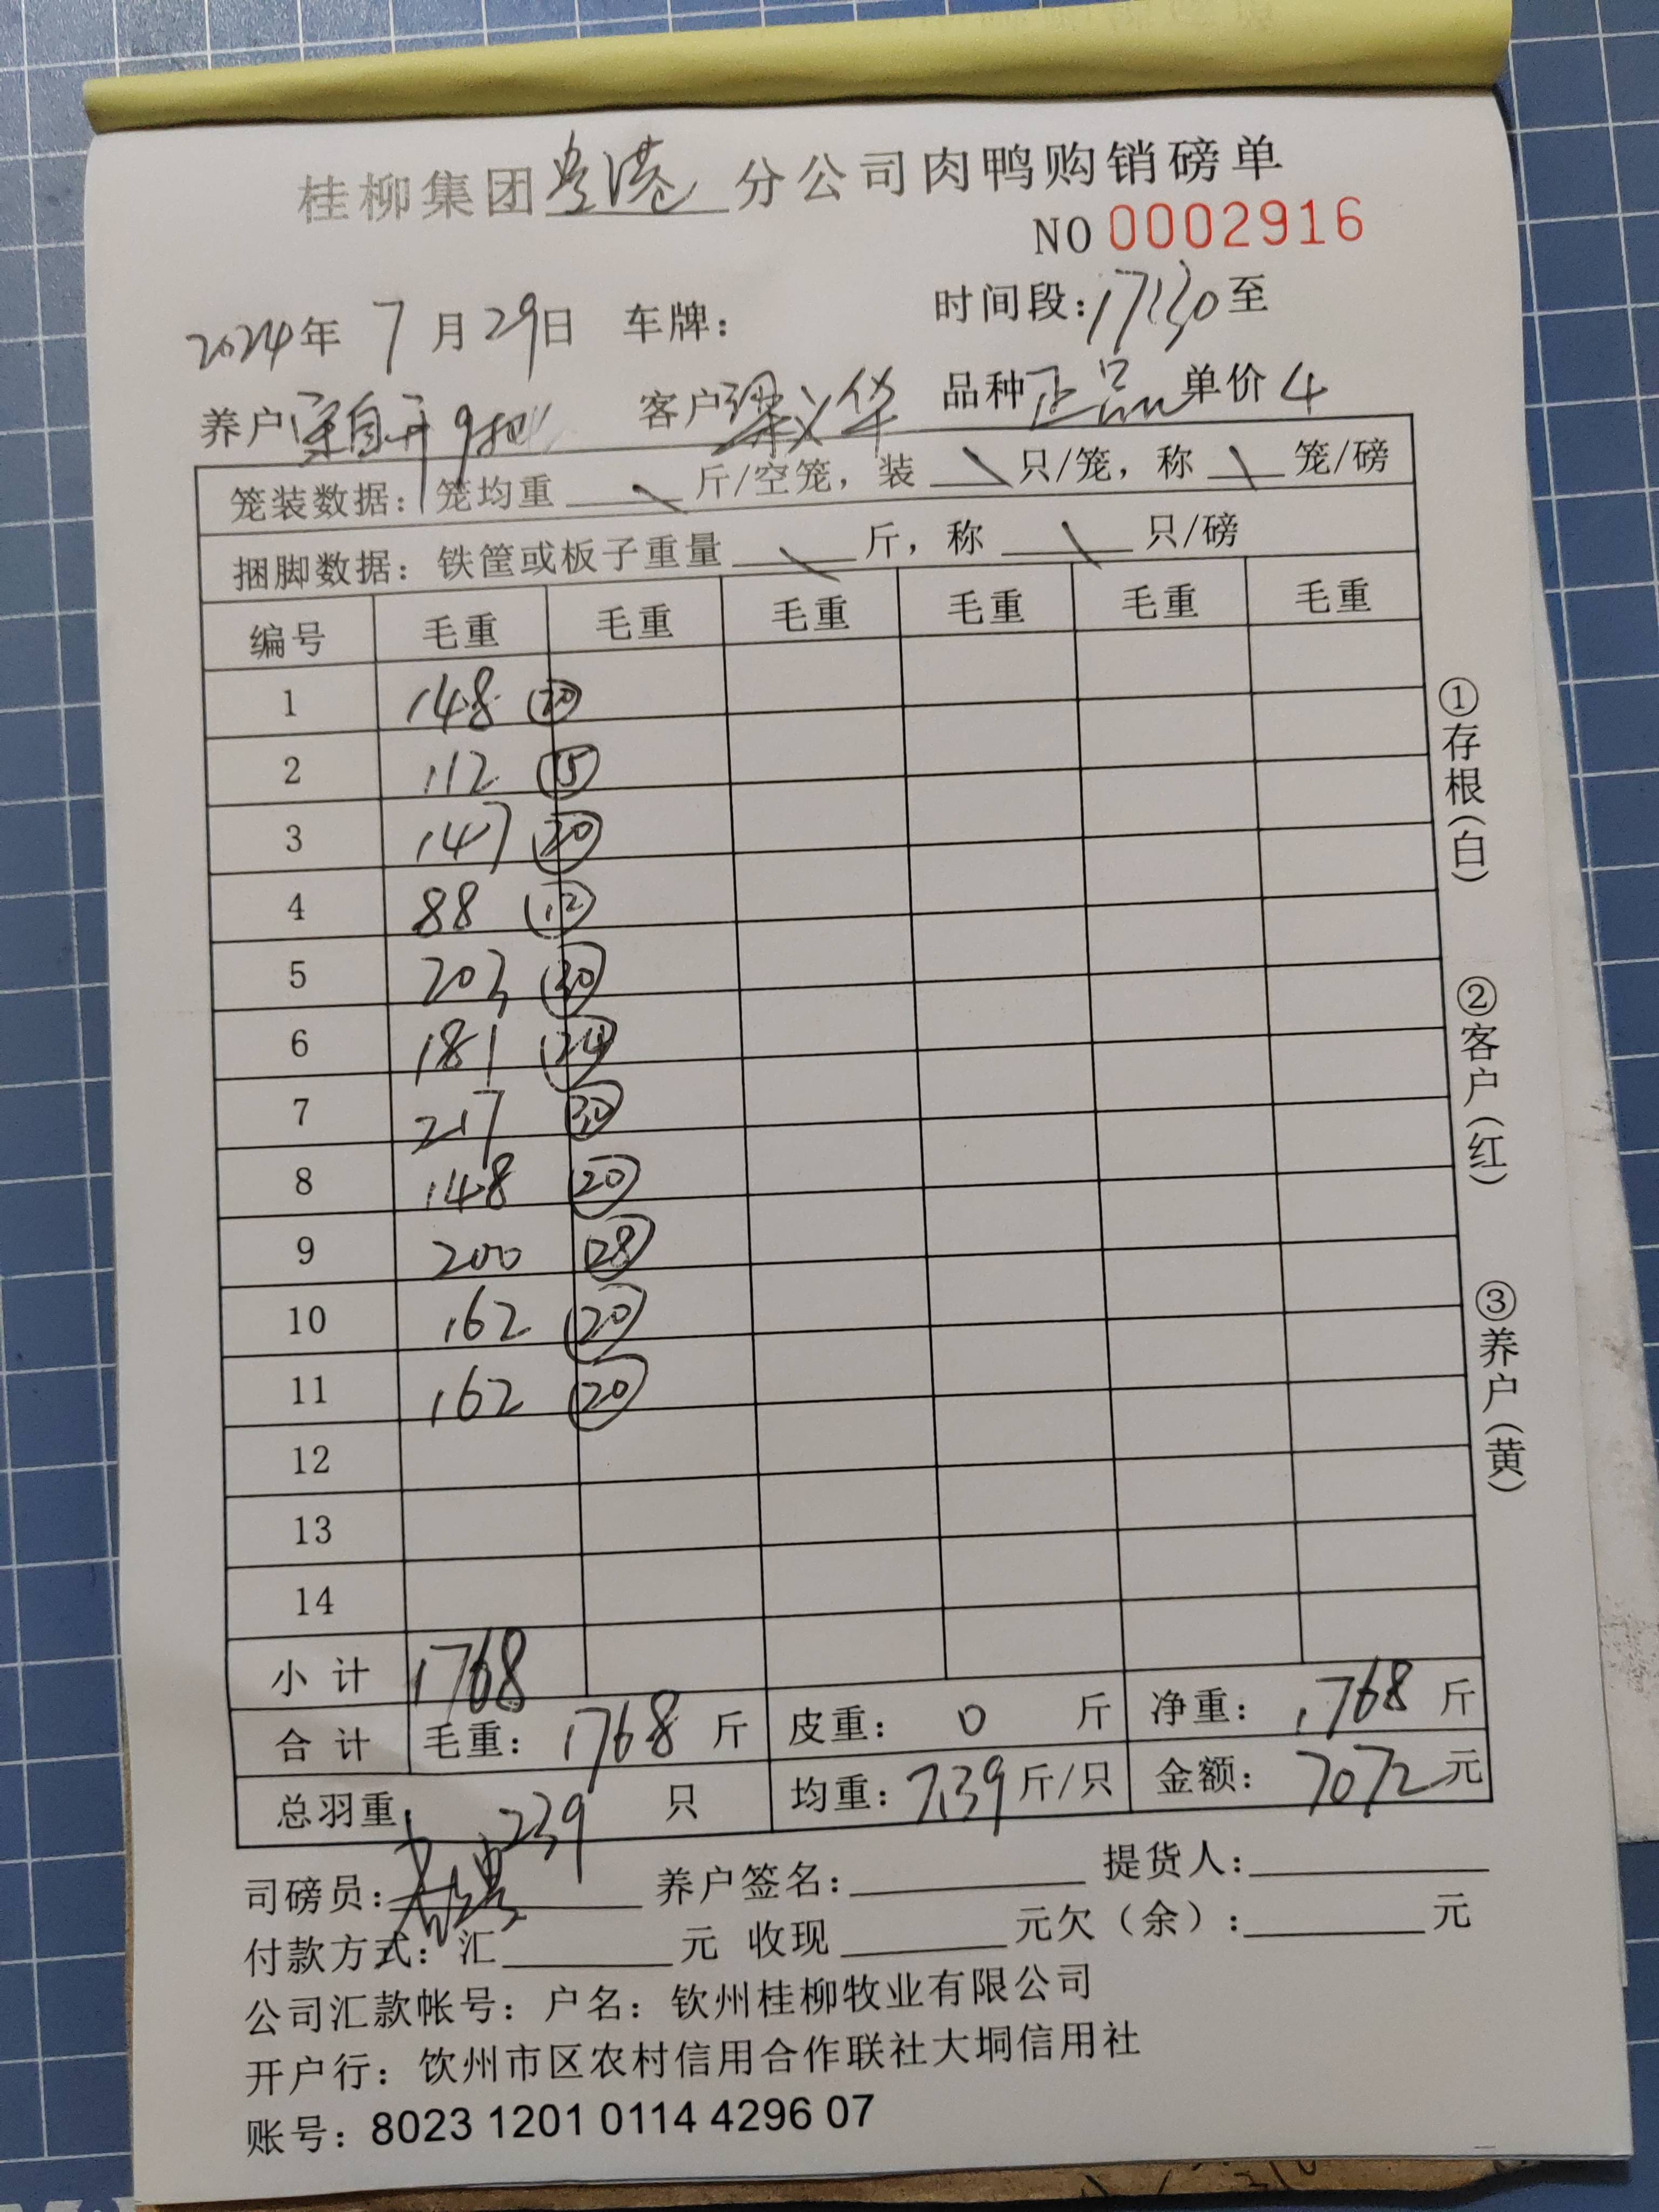 桂柳集团粤港分公司肉鸭购销磅单
NO 0002916
2024年 7月29日 车牌： 时间段：17:30至
养户 客户梁义华 品种正品 单价4
笼装数据：笼均重 \ 斤/空笼，装 \ 只/笼，称 \ 笼/磅
捆脚数据：铁筐或板子重量 \ 斤，称 \ 只/磅
编号 毛重 毛重 毛重 毛重 毛重 毛重
1 148 20
2 112 15
3 147 20
4 88 12
5 203 30
6 181 24
7 217 30
8 148 20
9 200 28
10 162 20
11 162 20
12
13
14
小计 1768
合计 毛重：1768 斤 皮重：0 斤 净重：1768 斤
总羽重 239 只 均重：7.39 斤/只 金额：7072元
司磅员： 养户签名： 提货人：
付款方式：汇 元 收现 元欠（余）： 元
公司汇款帐号：户名：钦州桂柳牧业有限公司
开户行：钦州市区农村信用合作联社大垌信用社
账号：8023 1201 0114 4296 07
①存根（白）
②客户（红）
③养户（黄）